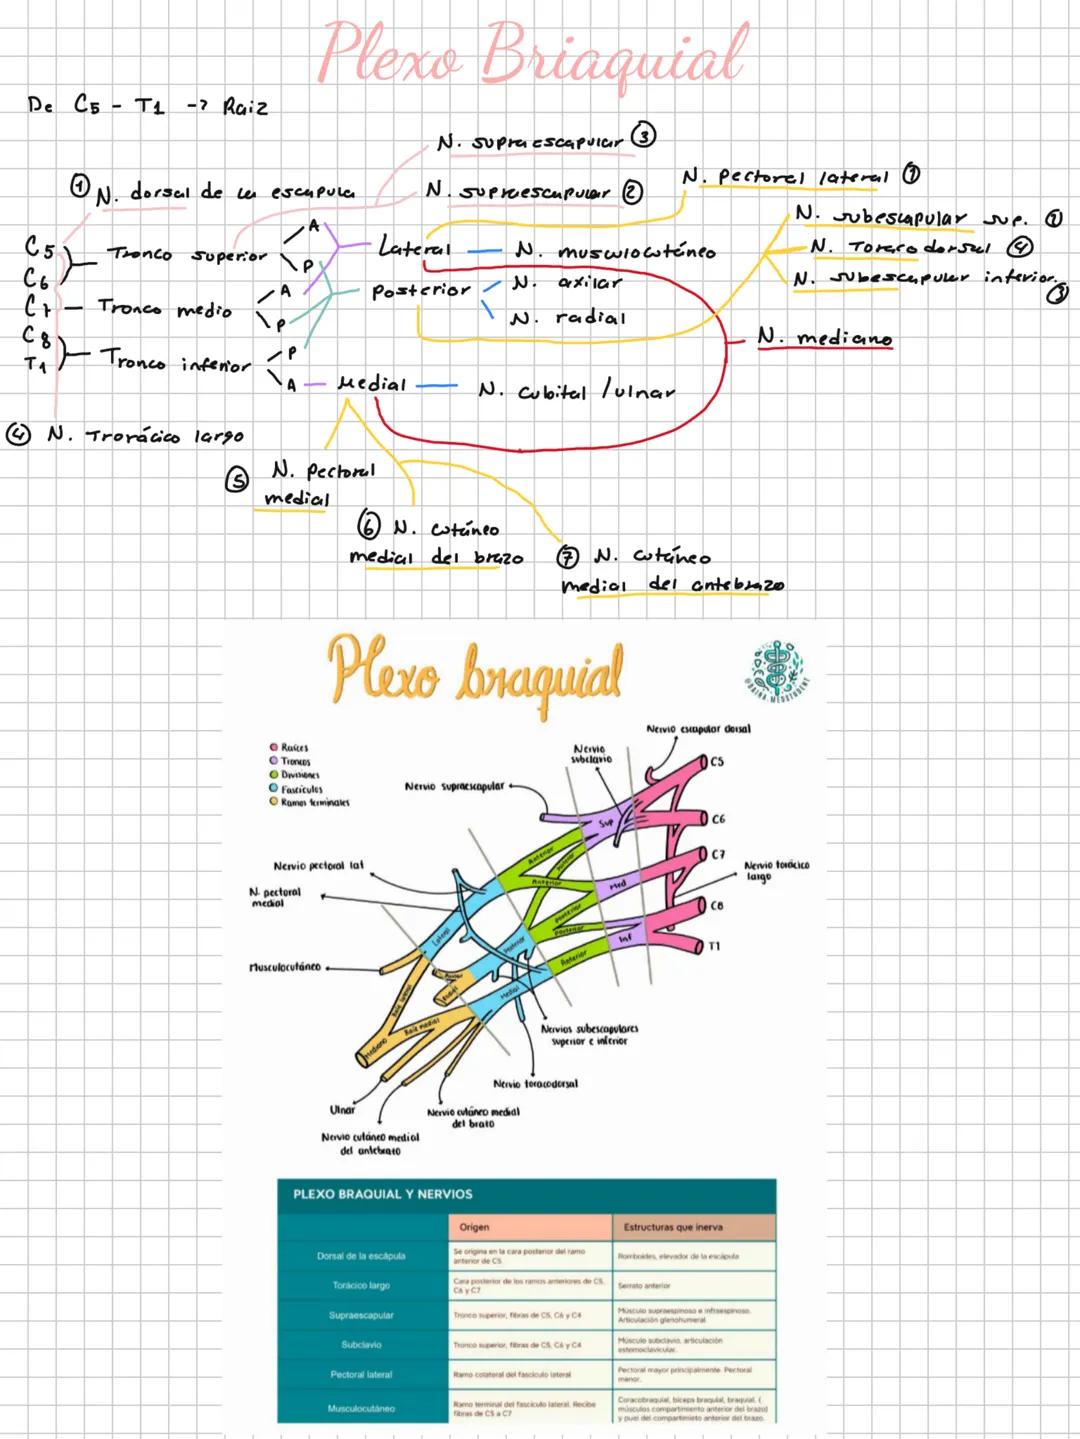 Plexo Briaquial
De C5 - T1 -> Raiz
N. supraescapular ③
① N. dorsal de la escapula
N. supraescapular ②
N. pectoral lateral ①
N. subescapular sup. ②
N. Toraco dorsal ④
N. subescapular inferior ③
C5
C6
C7
C8
T1
Tronco superior
Tronco medio
Tronco inferior
A
P
A
P
P
A
Lateral
N. musculocutáneo
Posterior
N. axilar
N. radial
N. mediano
Medial
N. cubital /ulnar
④ N. Trorácico largo
⑤ N. pectoral
medial
⑥ N. cutáneo
medial del brazo
⑦ N. cutáneo
medial del antebrazo
Plexo braquial
@DAIRA.MEDSTUDENT
Raíces
Troncos
Divisiones
Fascículos
Ramos terminales
Nervio escapular dorsal
Nervio
subclavio
Nervio supraescapular
C5
C6
C7
C8
T1
Sup
Med
Inf
Anterior
Posterior
Anterior
Posterior
Posterior
Anterior
Nervio torácico
largo
Nervio pectoral lat
N. pectoral
medial
Lateral
Posterior
Medial
Musculocutáneo
Radial
Raíz lateral
Raíz medial
Mediano
Nervios subescapulares
superior e inferior
Nervio toracodorsal
Ulnar
Nervio cutáneo medial
del brazo
Nervio cutáneo medial
del antebrazo
PLEXO BRAQUIAL Y NERVIOS
Origen
Estructuras que inerva
Dorsal de la escápula
Se origina en la cara posterior del ramo
anterior de C5
Romboides, elevador de la escápula
Torácico largo
Cara posterior de los ramos anteriores de C5,
C6 y C7
Serrato anterior
Supraescapular
Tronco superior, fibras de C5, C6 y C4
Músculo supraespinoso e infraespinoso.
Articulación glenohumeral
Subclavio
Tronco superior, fibras de C5, C6 y C4
Músculo subclavio, articulación
esternoclavicular.
Pectoral lateral
Ramo colateral del fascículo lateral
Pectoral mayor principalmente. Pectoral
menor.
Musculocutáneo
Ramo terminal del fascículo lateral. Recibe
fibras de C5 a C7
Coracobraquial, bíceps braquial, braquial. (
músculos compartimiento anterior del brazo)
y puel del compartimieto anterior del brazo.